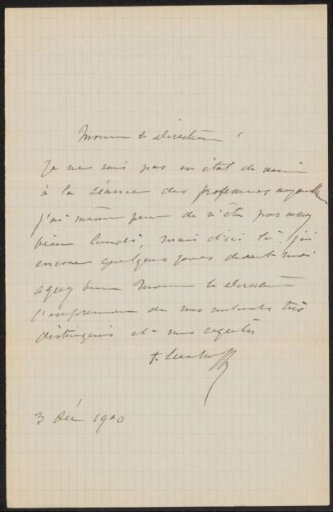 Monsieur le Directeur!
Je ne suis pas en état de venir
à la séance des professeurs aujourd'hui
j'ai même peur de n'être pas assez
bien lundi, mais d'ici là j'ai
encore quelques jours devant moi
Agréez bien Monsieur le Directeur
l'expression de mes sentiments très
distingués et mes regrets
3 Déc 1900